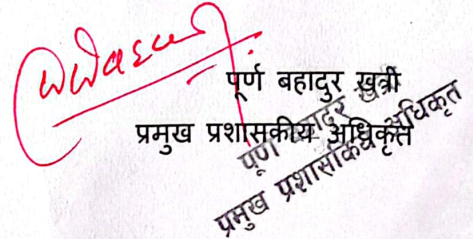 पूर्ण बहादुर खत्री
प्रमुख प्रशासकीय अधिकृत
पूर्ण बहादुर खत्री
प्रमुख प्रशासकिय अधिकृत